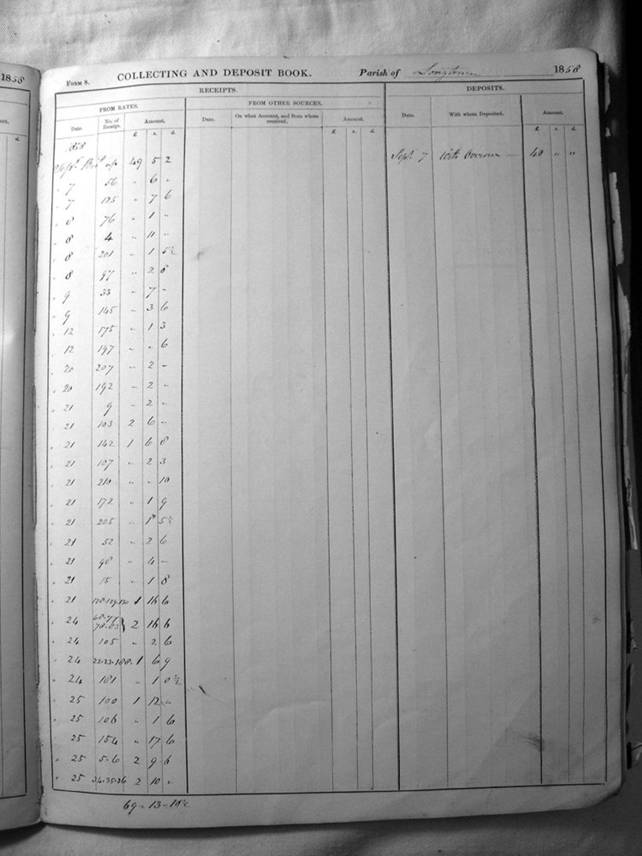 1858
FORM 8. COLLECTING AND DEPOSIT BOOK. Parish of 1858
RECEIPTS. DEPOSITS.
FROM RATES. FROM OTHER SOURCES.
Date. No. of Receipt. Amount. Date. On what Account, and from whom received. Amount. Date. With whom Deposited. Amount.
£ s. d. £ s. d. £ s. d.
1858
49 5 2 Sept 7 40 " "
" 7 56 " 6 -
" 7 " 7 6
" 8 76 " 1 -
" 8 4 " 11 -
" 8 201 " 1 5½
" 8 97 " 2 8
" 9 33 " 7 -
" 9 145 " 3 6
" 12 175 " 1 3
" 12 197 " " 6
" 20 207 " 2 -
" 20 192 " 2 -
" 21 9 " 2 -
" 21 103 2 6 -
" 21 142 1 6 8
" 21 107 " 2 3
" 21 210 " " 10
" 21 172 " 1 9
" 21 205 " 1 5½
" 21 52 " 2 6
" 21 98 " 4 -
" 21 15 " 1 8
" 21 1 16 6
" 24 2 16 6
" 24 105 " 2 6
" 24 1 6 9
" 24 181 " 1 0½
" 25 100 1 12 "
" 25 106 " 1 6
" 25 154 " 17 6
" 25 5.6 2 9 6
" 25 34.35.36 2 10 "
69-13-